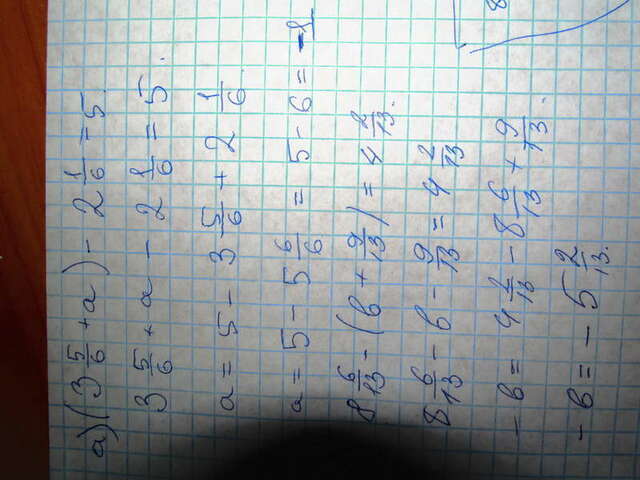 а) (3 5/6 + а) - 2 1/6 = 5.
3 5/6 + а - 2 1/6 = 5.
а = 5 - 3 5/6 + 2 1/6
а = 5 - 5 6/6 = 5 - 6 = -1
8 6/13 - (в + 9/13) = 4 2/13.
8 6/13 - в - 9/13 = 4 2/13
- в = 4 2/13 - 8 6/13 + 9/13.
- в = - 5 2/13.
8